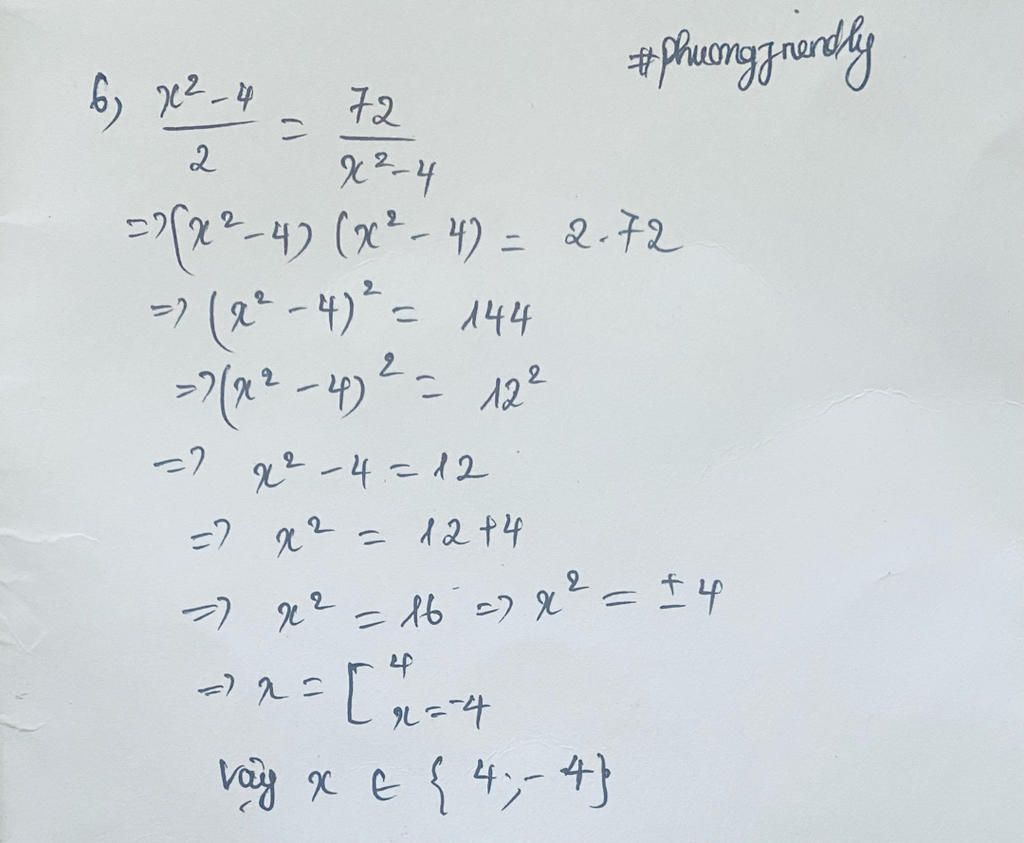 #phuongfriendly
b, x² - 4 / 2 = 72 / x² - 4
=> (x² - 4) (x² - 4) = 2.72
=> (x² - 4)² = 144
=> (x² - 4)² = 12²
=> x² - 4 = 12
=> x² = 12 + 4
=> x² = 16 => x² = ± 4
=> x = [ 4
x = -4
Vậy x ∈ { 4; - 4}